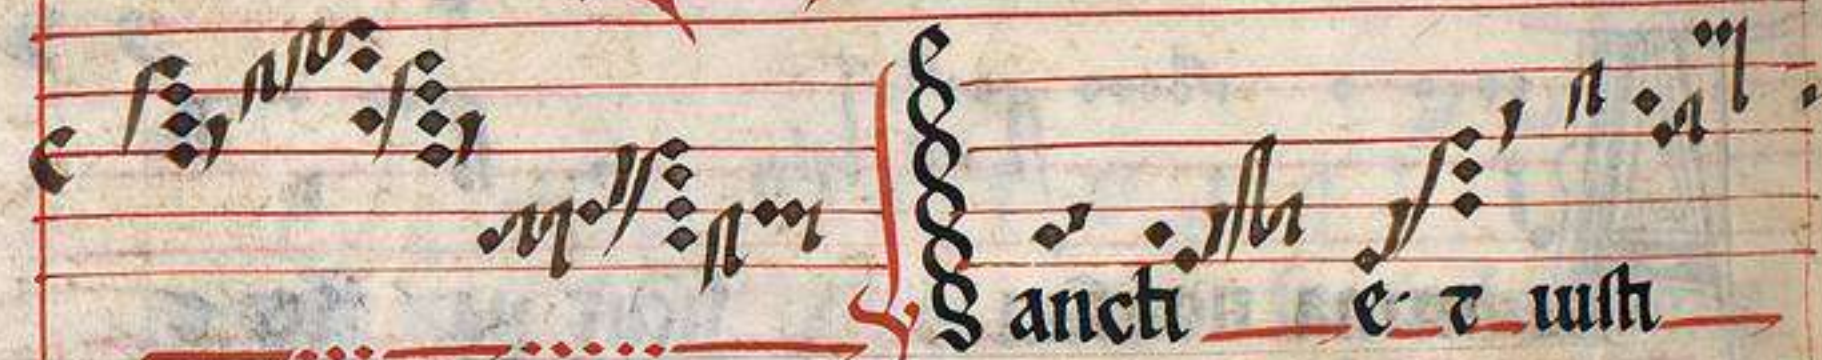 Sancti et iusti